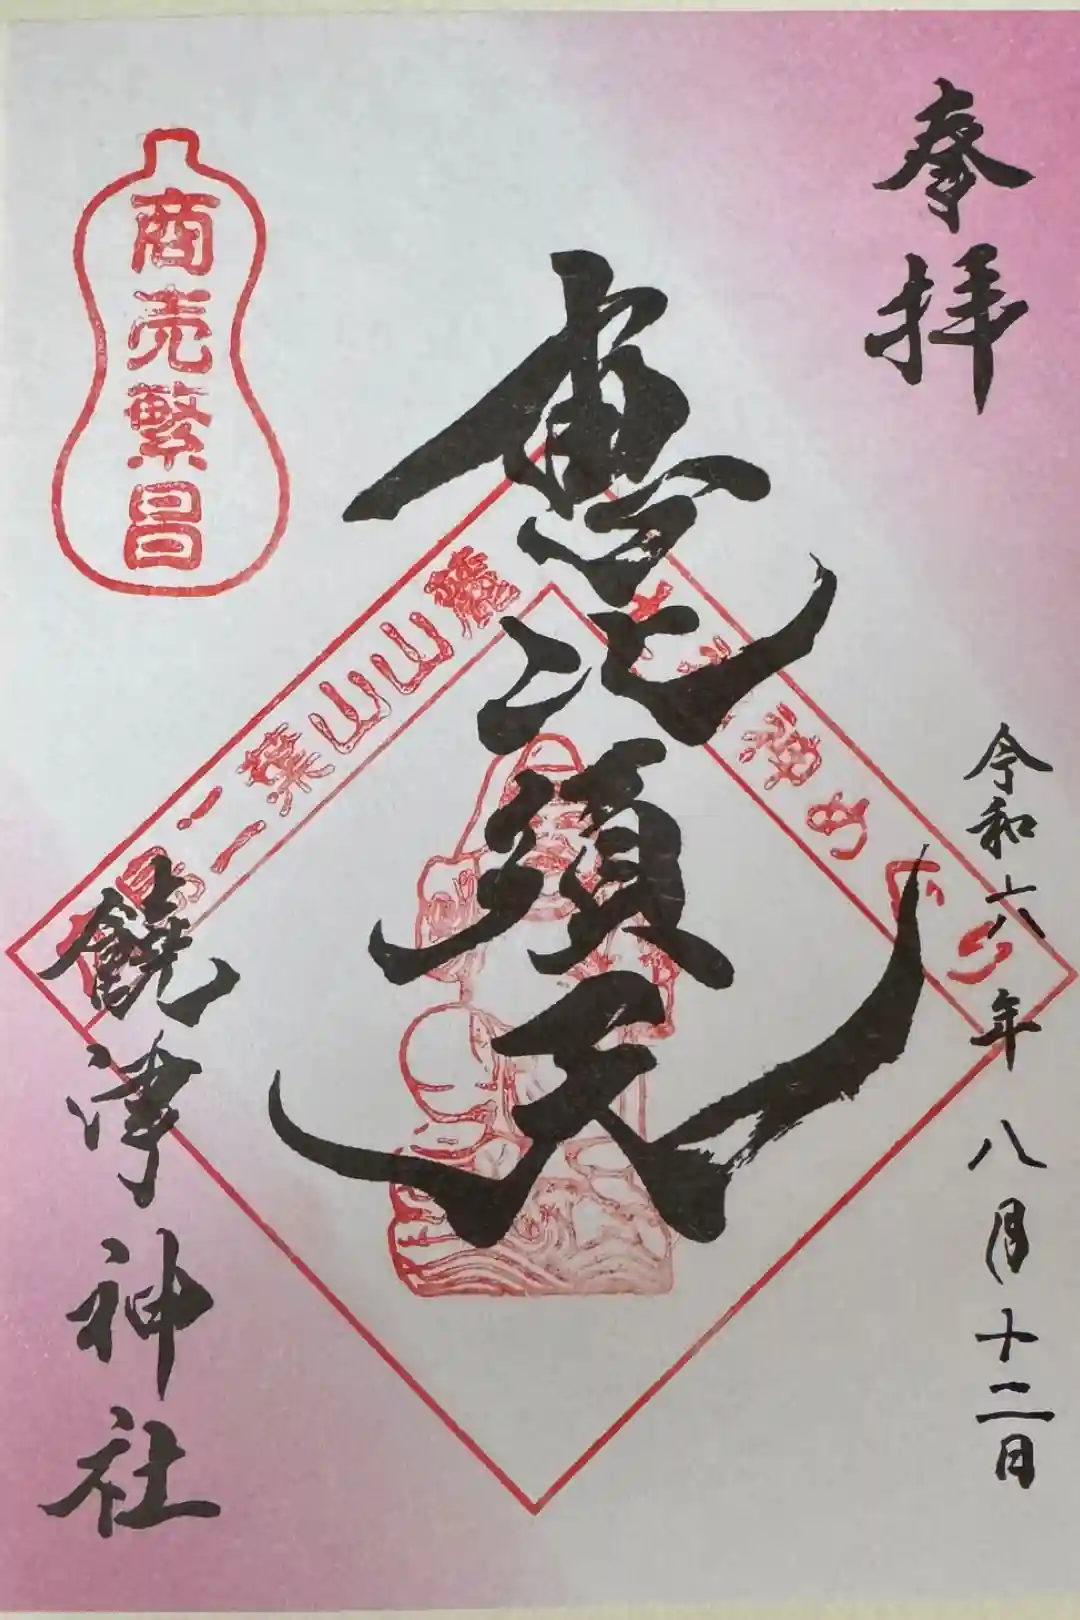 奉拝
令和六年 八月十二日
恵比須天
商売繁昌
二葉山山麓
七福神めぐり
饒津神社